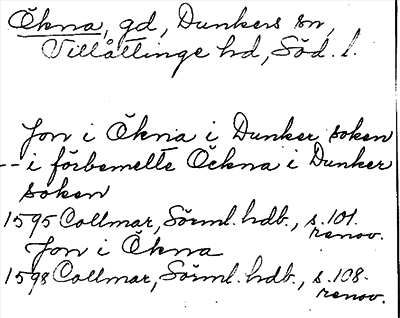 Ökna, gd, Dunkers sn,
Villåttinge hd, Söd. l.
Jon i Ökna i Dunker soken
-- i förbemelte Öckna i Dunker
soken
1595 Collmar, Sörml. hdb., s. 101.
renov.
Jon i Ökna
1598 Collmar, Sörml. hdb., s. 108.
renov.